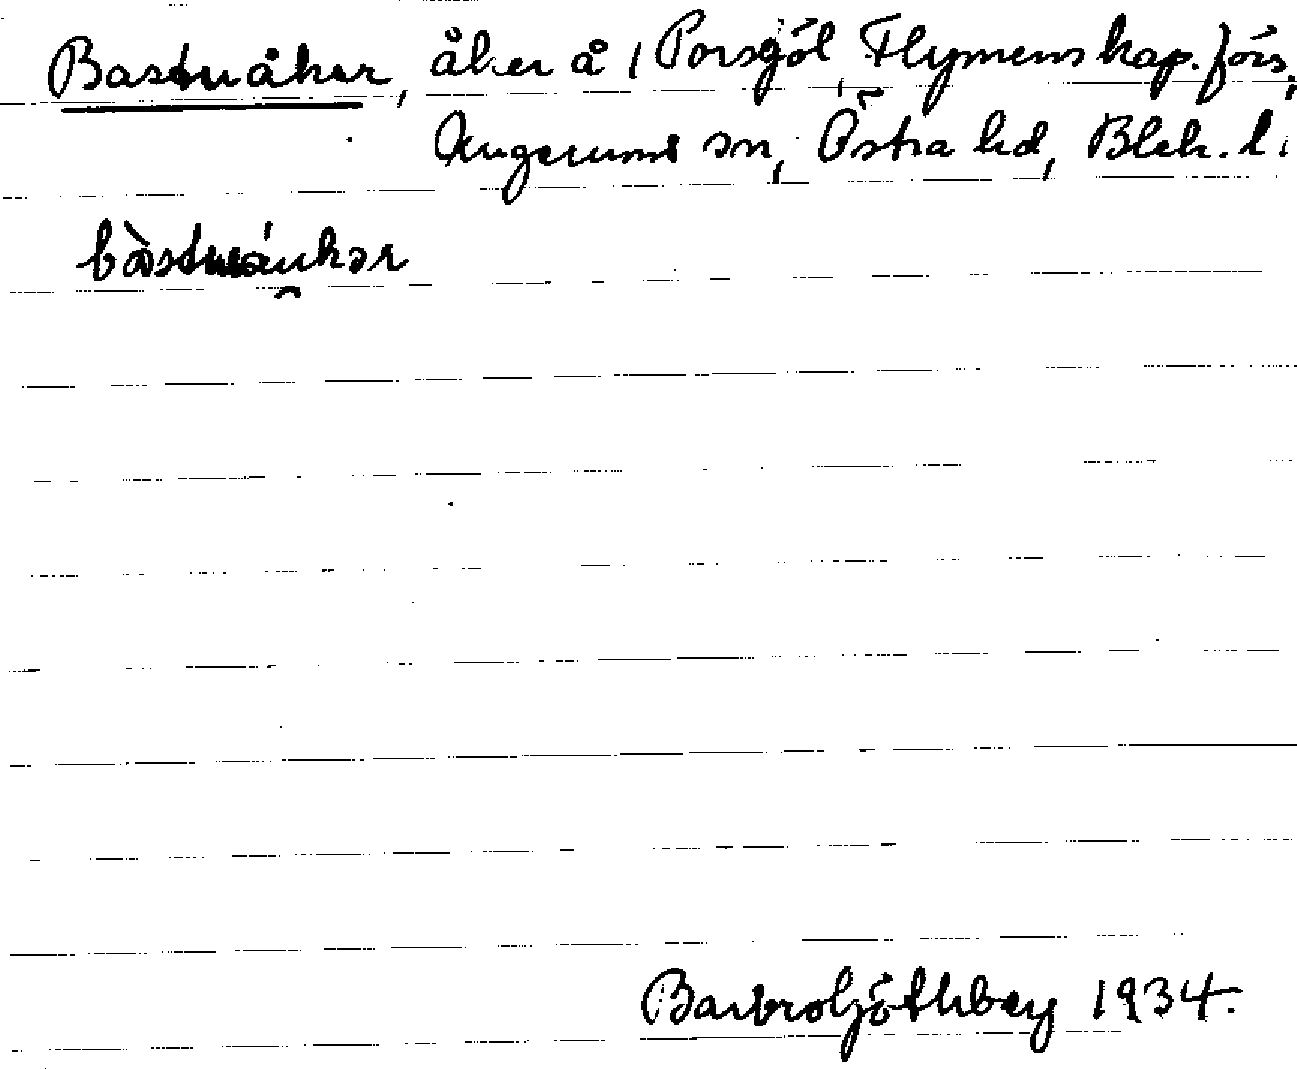 Bastuåker, åker å 1 Porsgöl, Flymens kap. förs.,
Augerums sn, Östra hd, Blek. l.
Barbro Göthberg 1934.